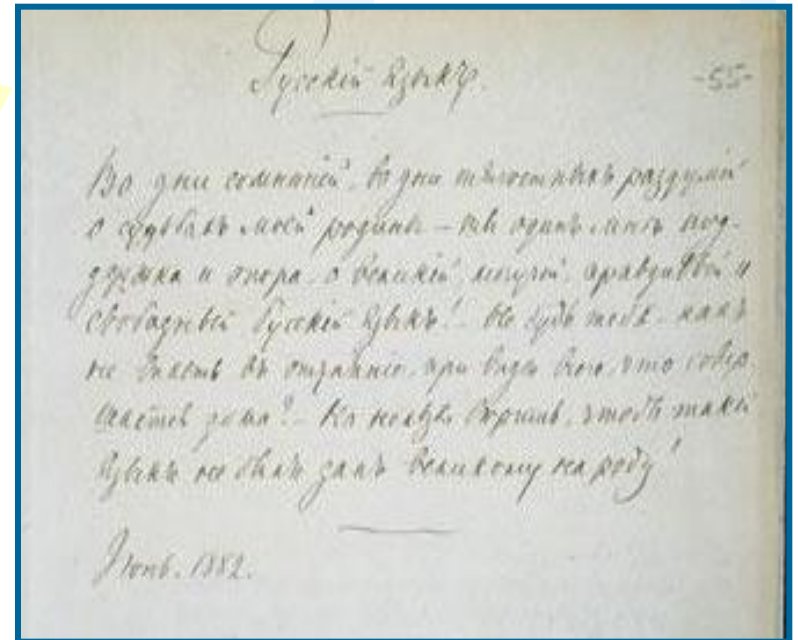 Русскій Языкъ.
-55-
Во дни сомнѣній, во дни тягостныхъ раздумій
о судьбахъ моей родины – ты одинъ мнѣ под-
держка и опора, о великій, могучій, правдивый и
свободный Русскій Языкъ! – Не будь тебя – какъ
не впасть въ отчаяніе, при видѣ всего, что совер-
шается дома? – Но нельзя вѣрить, чтобъ такой
языкъ не былъ данъ великому народу!
Іюнь. 1882.